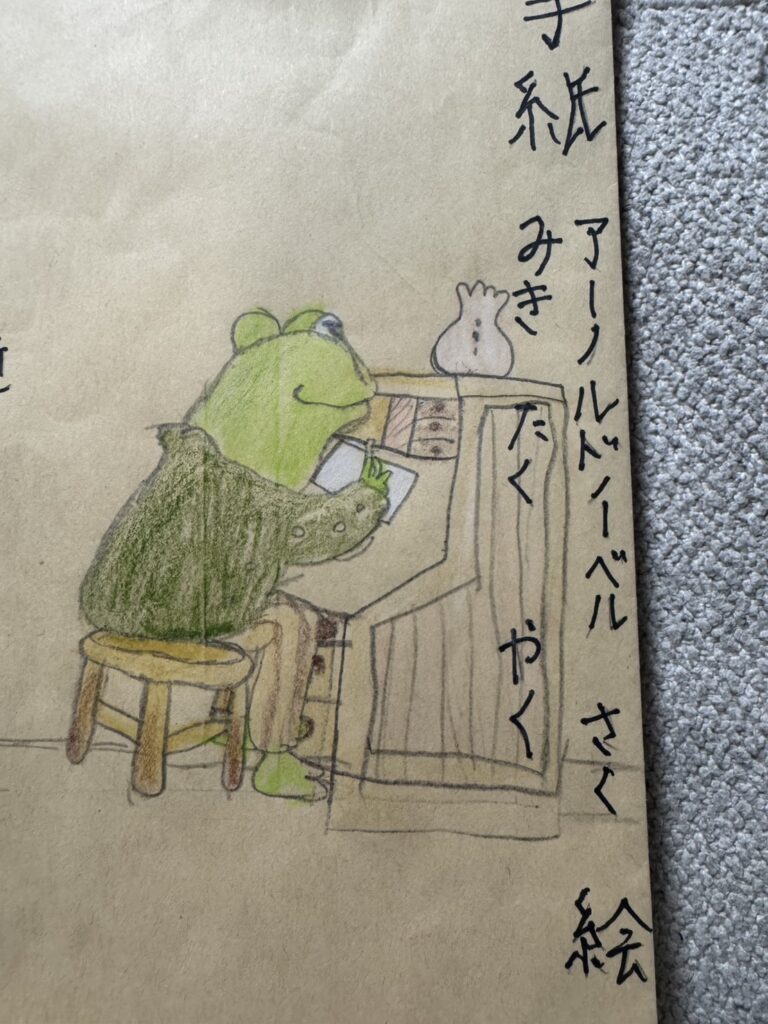 手紙
アーノルドノーベル さく 絵
みき たく やく